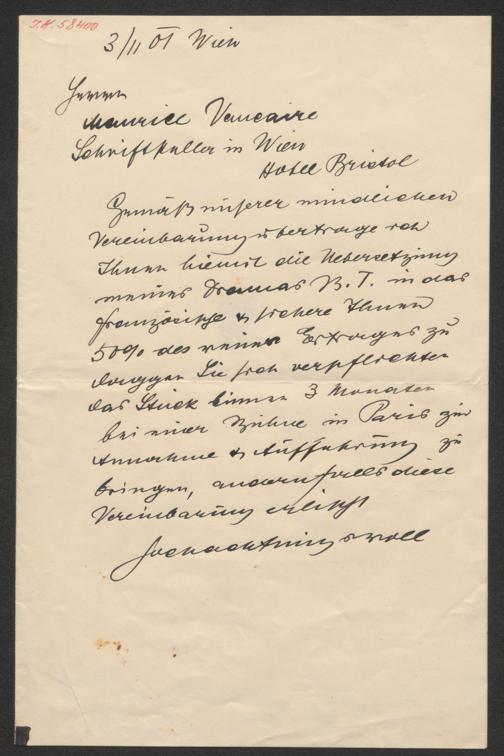 I.N. 58400
3/11 01 Wien
Herrn
Maurice Vaucaire
Schriftsteller in Wien
Hotel Bristol
Gemäß unserer mündlichen
Vereinbarung übertrage ich
Ihnen hiemit die Uebersetzung
meines Dramas B. T. in das
französische & sichere Ihnen
50% des reinen Ertrages zu
dagegen Sie sich verpflichten
das Stück binnen 3 Monaten
bei einer Bühne in Paris zur
Annahme & Aufführung zu
bringen, andernfalls diese
Vereinbarung erlischt
Hochachtungsvoll